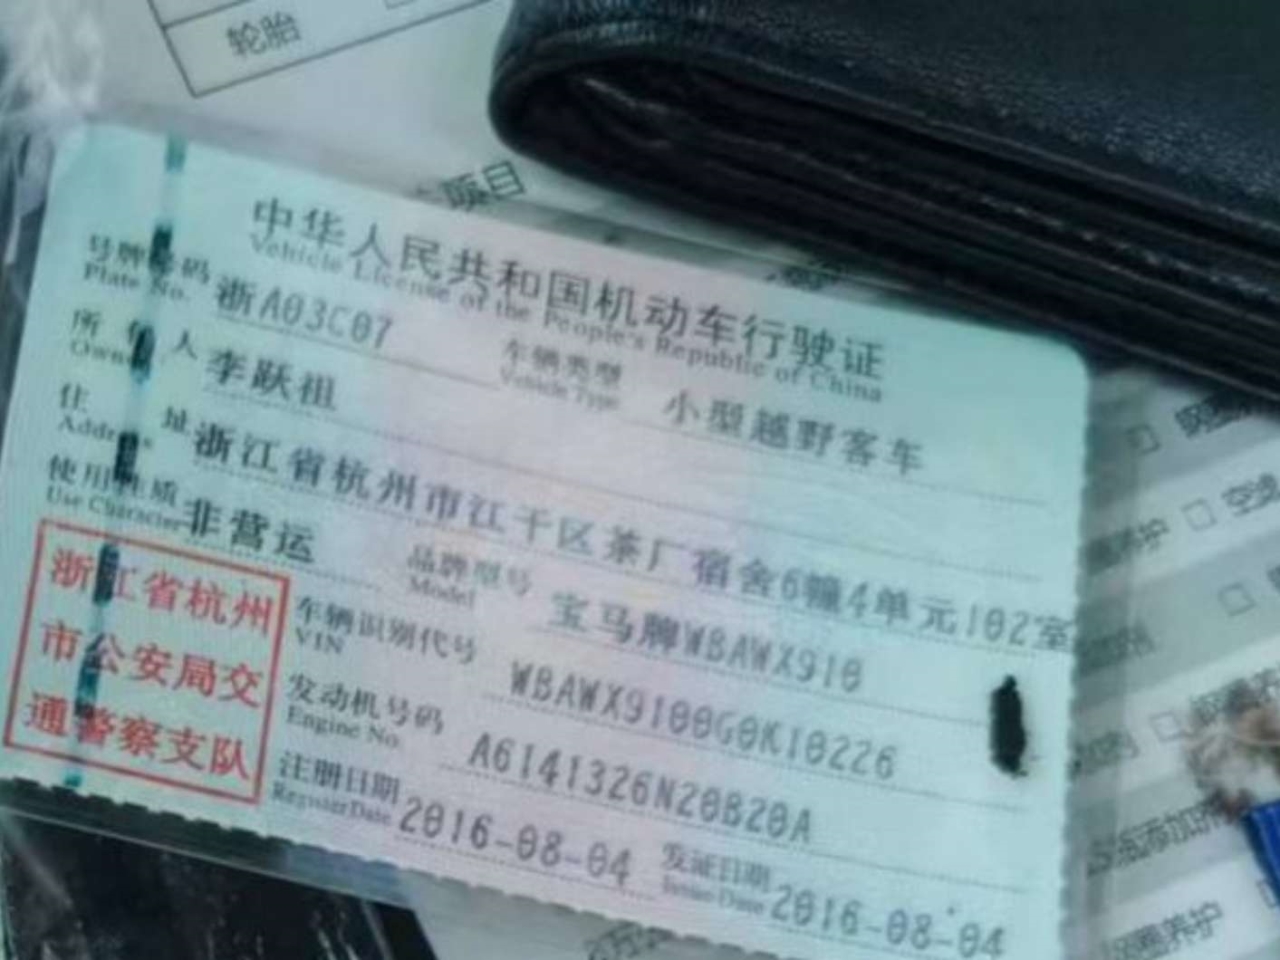 轮胎
项目
中华人民共和国机动车行驶证
Vehicle License of the People's Republic of China
号牌号码 浙A03C07 车辆类型 小型越野客车
Plate No. Vehicle Type
所有人 李跃祖
Owner
住址 浙江省杭州市江干区茶厂宿舍6幢4单元102室
Address
使用性质 非营运 品牌型号 宝马牌WBAWX910
Use Character Model
浙江省杭州
市公安局交
通警察支队
车辆识别代号 WBAWX9100G0K10226
VIN
发动机号码 A6141326N20B20A
Engine No.
注册日期 2016-08-04 发证日期 2016-08-04
Register Date Issue Date
空滤
养护
养护